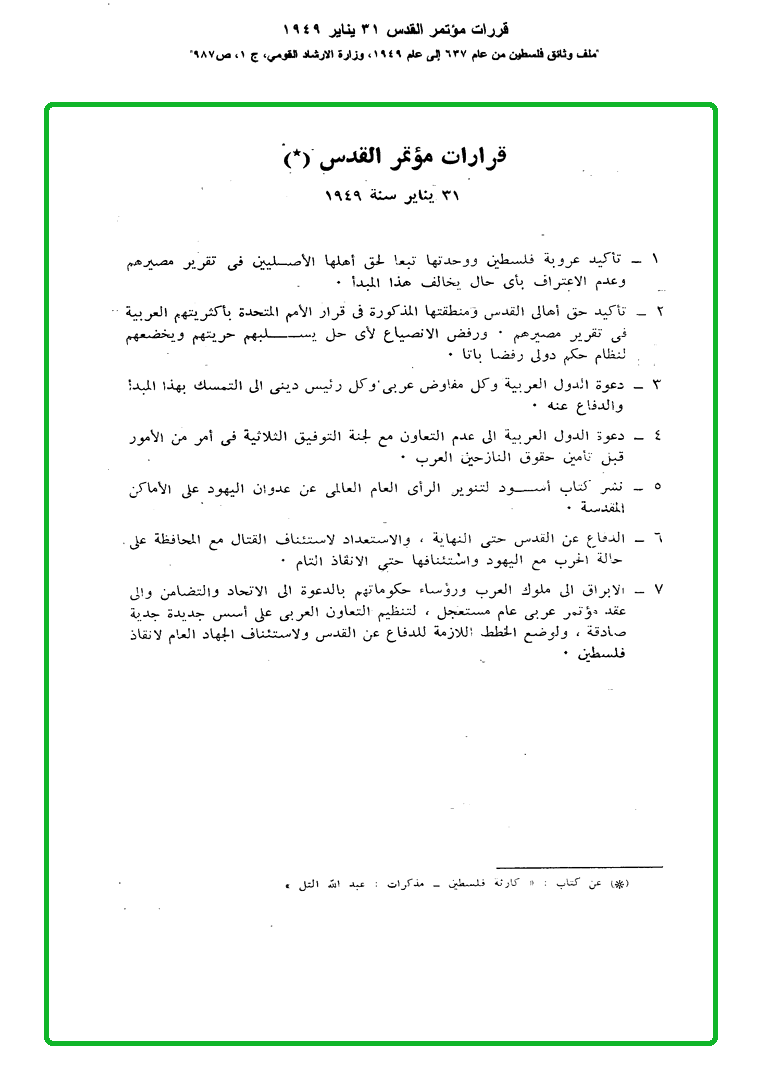 قررات مؤتمر القدس ٣١ يناير ١٩٤٩
"ملف وثائق فلسطين من عام ٦٣٧ إلى عام ١٩٤٩، وزارة الارشاد القومي، ج ١، ص٩٨٧"
قرارات مؤتمر القدس (*)
٣١ يناير سنة ١٩٤٩
١ ــ تأكيد عروبة فلسطين ووحدتها تبعا لحق أهلها الأصــليين فى تقرير مصيرهم
وعدم الاعتراف بأى حال يخالف هذا المبدأ ٠
٢ ــ تأكيد حق أهالى القدس ومنطقتها المذكورة فى قرار الأمم المتحدة بأكثريتهم العربية
فى تقرير مصيرهم ٠ ورفض الانصياع لأى حل يســـلبهم حريتهم ويخضعهم
لنظام حكم دولى رفضا باتا ٠
٣ ــ دعوة الدول العربية وكل مفاوض عربى وكل رئيس دينى الى التمسك بهذا المبدأ
والدفاع عنه ٠
٤ ــ دعوة الدول العربية الى عدم التعاون مع لجنة التوفيق الثلاثية فى أمر من الأمور
قبل تأمين حقوق النازحين العرب ٠
٥ ــ نشر كتاب أســـود لتنوير الرأى العام العالمى عن عدوان اليهود على الأماكن
المقدسة ٠
٦ ــ الدفاع عن القدس حتى النهاية ، والاستعداد لاستئناف القتال مع المحافظة على
حالة الحرب مع اليهود واستئنافها حتى الانقاذ التام ٠
٧ ــ الابراق الى ملوك العرب ورؤساء حكوماتهم بالدعوة الى الاتحاد والتضامن والى
عقد مؤتمر عربى عام مستعجل ، لتنظيم التعاون العربى على أسس جديدة جدية
صادقة ، ولوضع الخطط اللازمة للدفاع عن القدس ولاستئناف الجهاد العام لانقاذ
فلسطين ٠
(*) عن كتاب : « كارثة فلسطين ــ مذكرات : عبد الله التل »